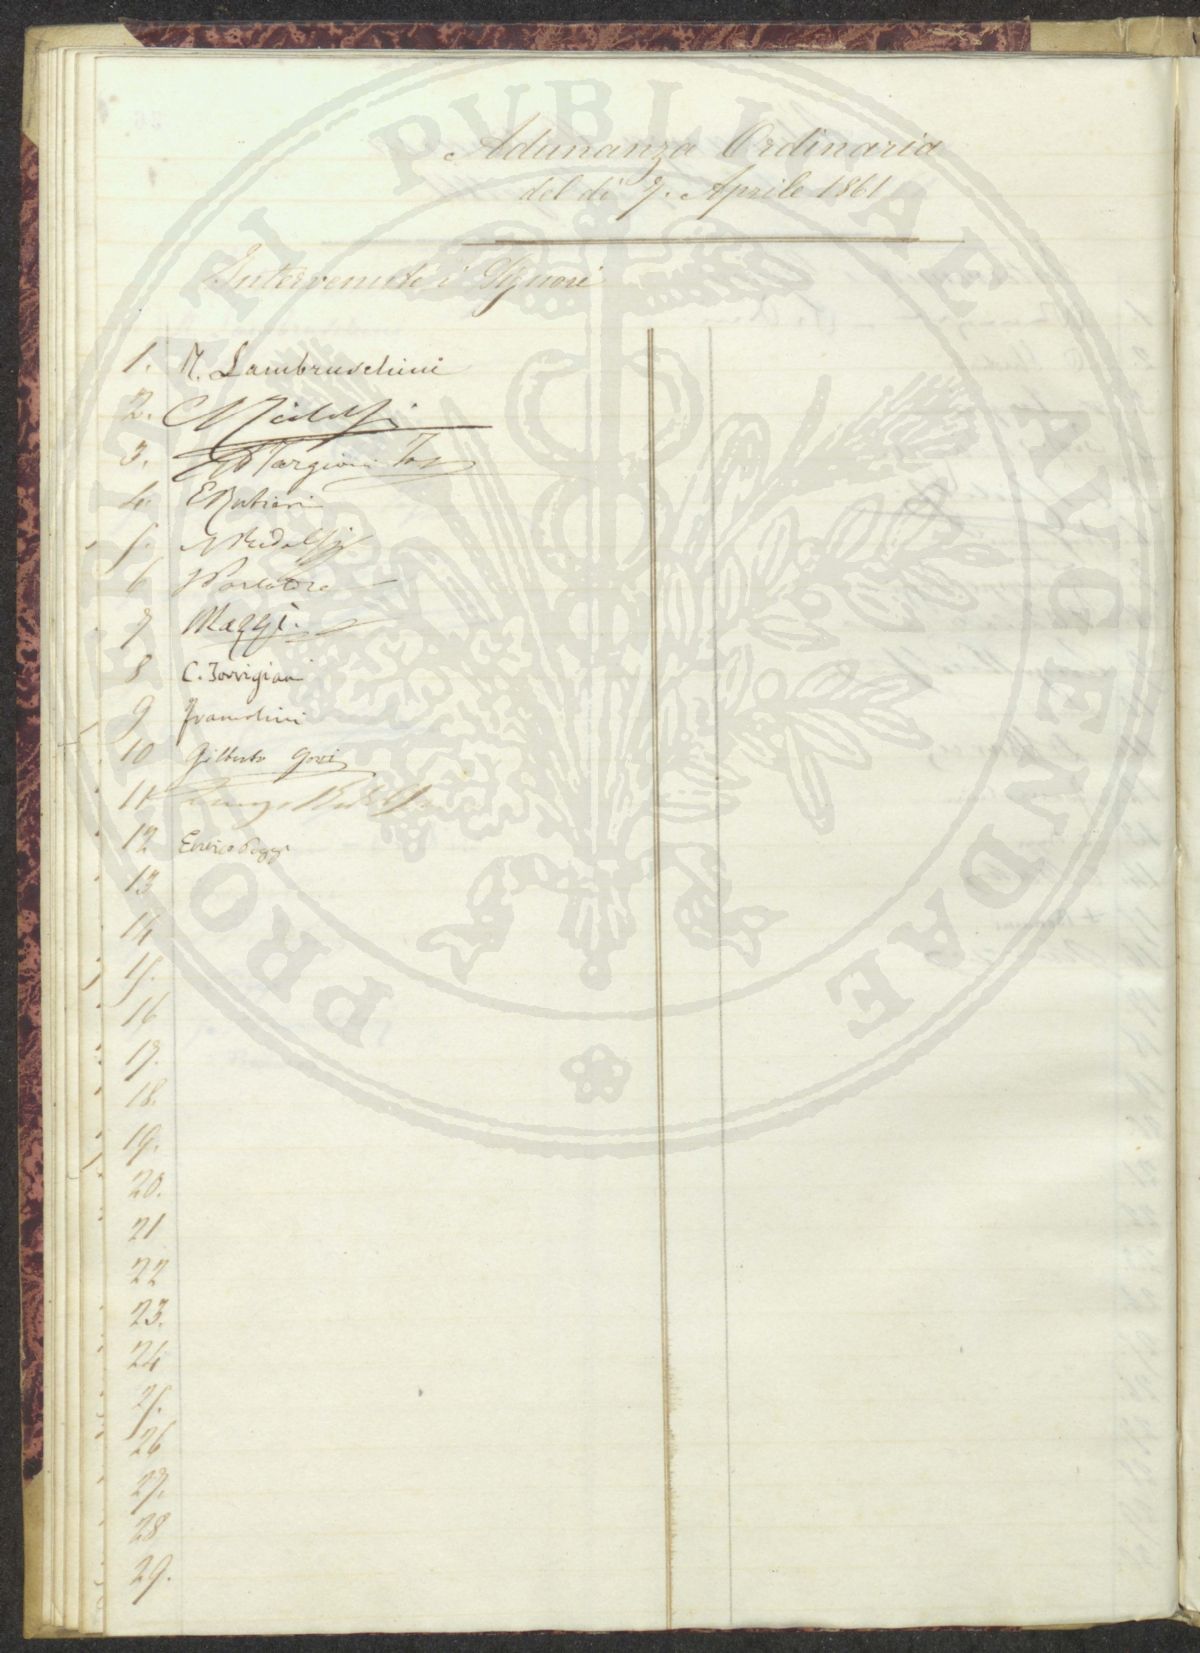 PROSPERITATI PUBLICAE AUGENDAE
Adunanza Ordinaria
del dì 7. Aprile 1861
Intervenuti i Signori
1. R. Lambruschini
2. C Ridolfi
3. Targioni Toz
4. E Rubieri
5. N Ridolfi
6 Parlatore
7 Maggi.
8 C. Torrigiani
9 Franchini
10 Gilberto Govi
11 Luigi Ridolfi
12 Enrico Poggi
13
14
15.
16
17.
18.
19.
20.
21
22
23.
24
25.
26
27.
28
29.